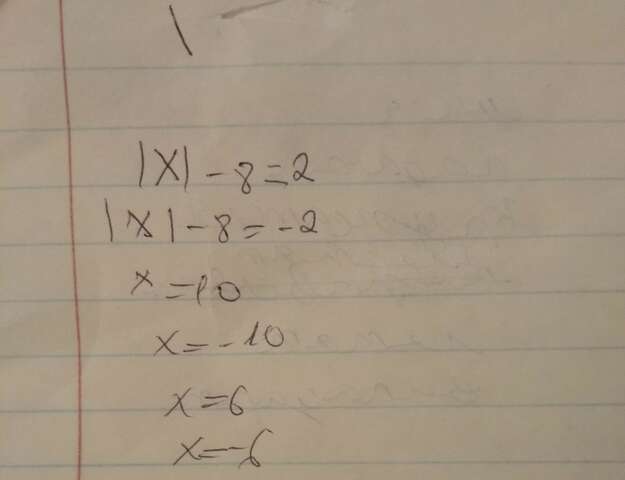 |x| - 8 = 2
|x| - 8 = -2
x = 10
x = -10
x = 6
x = -6